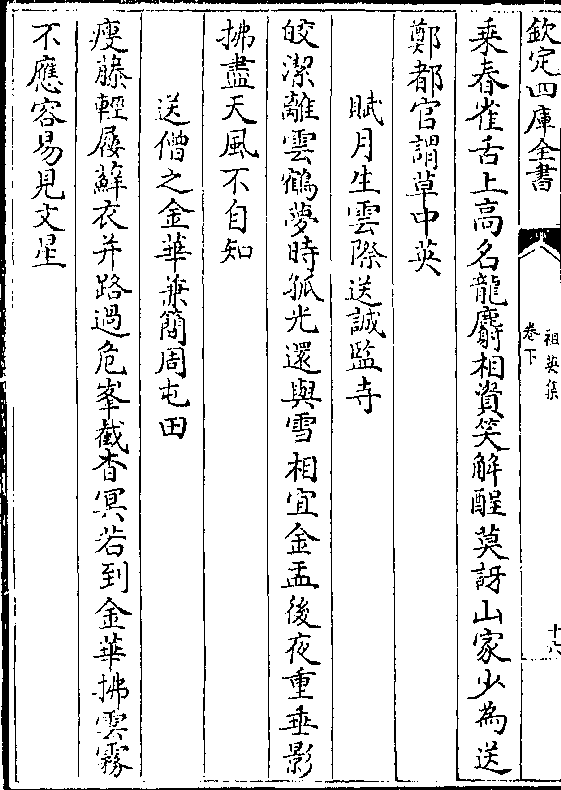 欽定四庫全書
祖英集
卷下
十六
乘春雀舌上高名龍麝相資笑解酲莫訝山家少為送
鄭都官謂草中英
賦月生雲際送誠監寺
皎潔離雲鶴夢時孤光還與雪相宜金盂後夜重垂影
拂盡天風不自知
送僧之金華兼簡周屯田
瘦藤輕屐蘚衣并路過危峯截杳冥若到金華拂雲霧
不應容易見文星